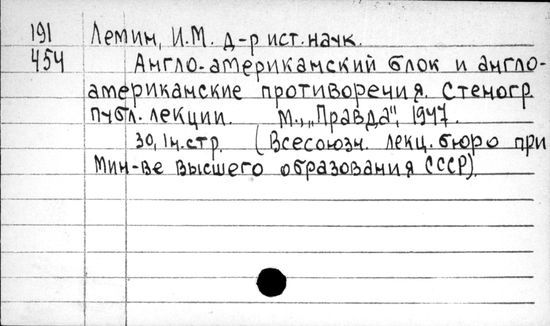 191 Лемин, И.М. д-р ист. наук.
454 Англо-американский блок и англо-
американские противоречия. Стеногр.
публ. лекции. М., "Правда", 1947.
30, 1н. стр. (Всесоюзн. лекц. бюро при
Мин-ве высшего образования СССР).